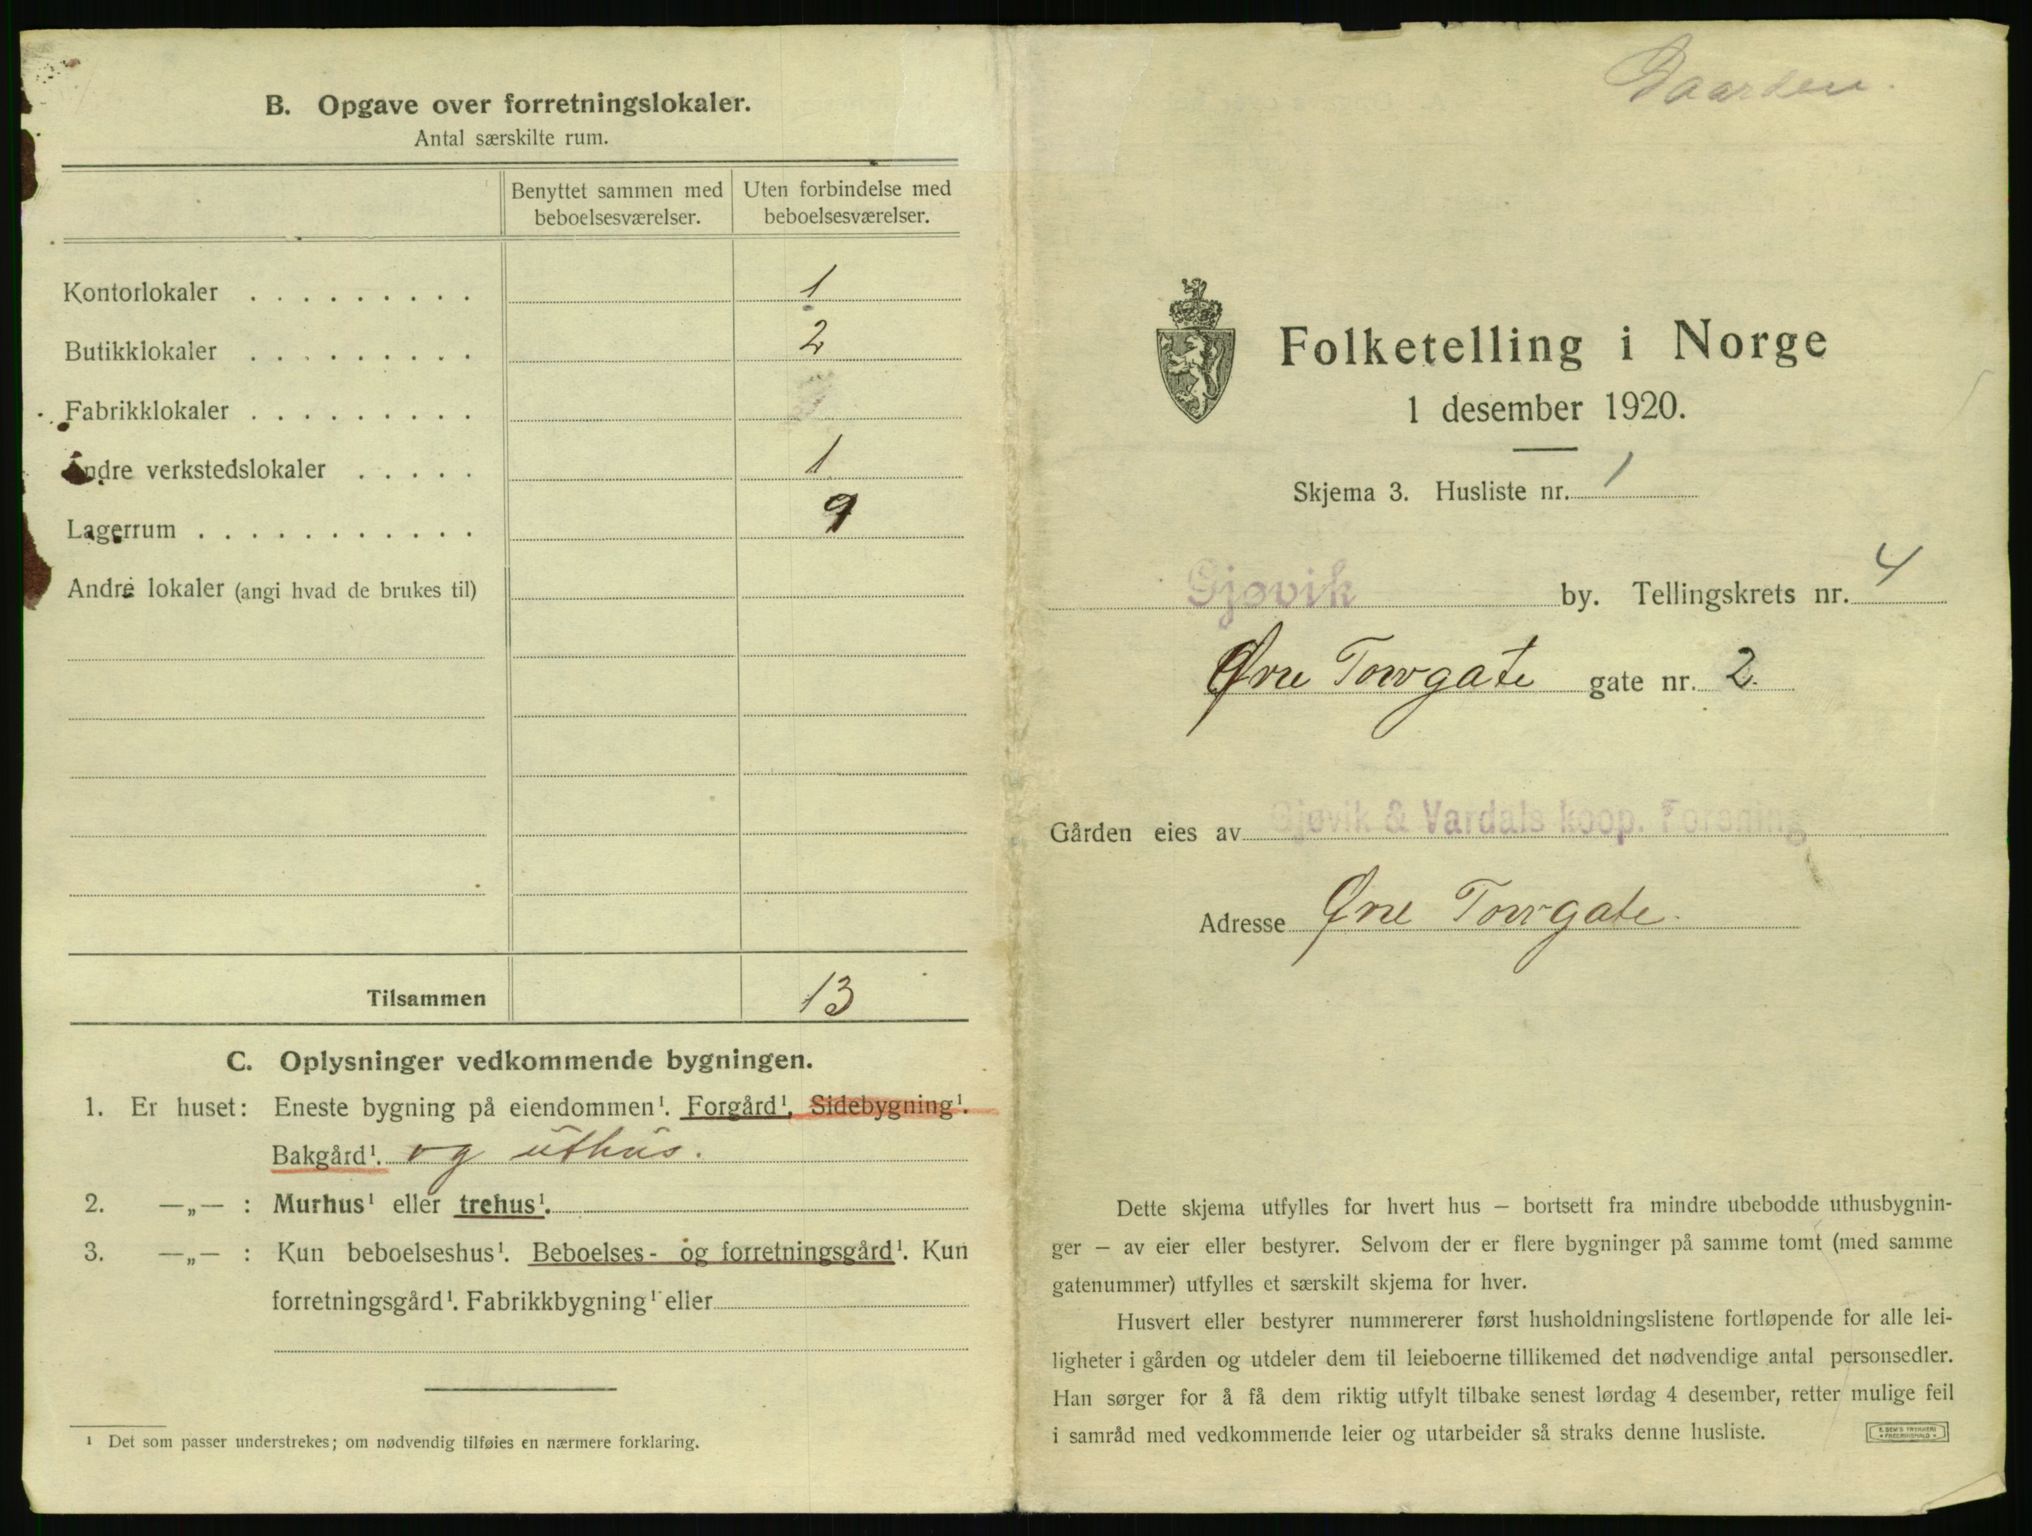 B. Opgave over forretningslokaler.
Antal særskilte rum.
Benyttet sammen med beboelsesværelser.
Uten forbindelse med beboelsesværelser.
Kontorlokaler . . . . . . . . . 1
Butikklokaler . . . . . . . . . 2
Fabrikklokaler . . . . . . . . .
Andre verkstedslokaler . . . . . 1
Lagerrum . . . . . . . . . . . 9
Andre lokaler (angi hvad de brukes til)
Tilsammen 13
C. Oplysninger vedkommende bygningen.
1. Er huset: Eneste bygning på eiendommen¹. Forgård¹. Sidebygning¹.
Bakgård¹. og uthus.
2. —„— : Murhus¹ eller trehus¹.
3. —„— : Kun beboelseshus¹. Beboelses- og forretningsgård¹. Kun
forretningsgård¹. Fabrikkbygning¹ eller
¹ Det som passer understrekes; om nødvendig tilføies en nærmere forklaring.
Gaarden.
Folketelling i Norge
1 desember 1920.
Skjema 3. Husliste nr. 1
Gjøvik by. Tellingskrets nr. 4
Øvre Torvgate gate nr. 2.
Gården eies av Gjøvik & Vardals koop. Forening
Adresse Øvre Torvgate.
Dette skjema utfylles for hvert hus – bortsett fra mindre ubebodde uthusbygnin-
ger – av eier eller bestyrer. Selvom der er flere bygninger på samme tomt (med samme
gatenummer) utfylles et særskilt skjema for hver.
Husvert eller bestyrer nummererer først husholdningslistene fortløpende for alle lei-
ligheter i gården og utdeler dem til leieboerne tillikemed det nødvendige antal personsedler.
Han sørger for å få dem riktig utfylt tilbake senest lørdag 4 desember, retter mulige feil
i samråd med vedkommende leier og utarbeider så straks denne husliste.